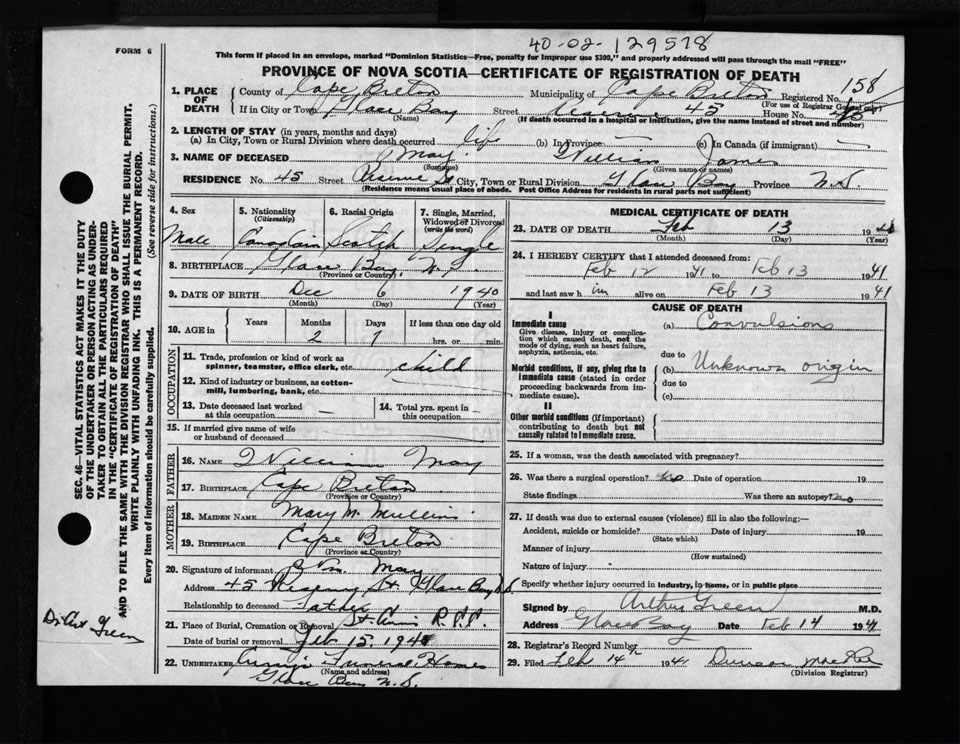 40-02-129578
FORM 6
This form if placed in an envelope, marked "Dominion Statistics—Free, penalty for improper use $300," and properly addressed will pass through the mail "FREE"
PROVINCE OF NOVA SCOTIA—CERTIFICATE OF REGISTRATION OF DEATH
158
1. PLACE OF DEATH County of Cape Breton Municipality of Cape Breton Registered No.
(For use of Registrar General only)
If in City or Town Glace Bay Street Reserve 45 House No.
(Name) (If death occurred in a hospital or institution, give the name instead of street and number)
2. LENGTH OF STAY (in years, months and days)
(a) In City, Town or Rural Division where death occurred life (b) In Province — (c) In Canada (if immigrant) —
3. NAME OF DECEASED May William James
(Surname) (Given name or names)
RESIDENCE No. 45 Street Reserve St City, Town or Rural Division Glace Bay Province N.S.
(Residence means usual place of abode. Post Office Address for residents in rural parts not sufficient)
4. Sex 5. Nationality (Citizenship) 6. Racial Origin 7. Single, Married, Widowed or Divorced (write the word)
Male Canadain Scotch Single
8. BIRTHPLACE Glace Bay, N.S.
(Province or Country)
9. DATE OF BIRTH Dec 6 1940
(Month) (Day) (Year)
10. AGE in Years Months Days If less than one day old
2 7 hrs. or min.
OCCUPATION
11. Trade, profession or kind of work as spinner, teamster, office clerk, etc. child
12. Kind of industry or business, as cotton-mill, lumbering, bank, etc.
13. Date deceased last worked at this occupation — 14. Total yrs. spent in this occupation —
15. If married give name of wife or husband of deceased
FATHER
16. NAME William May
17. BIRTHPLACE Cape Breton
(Province or Country)
MOTHER
18. MAIDEN NAME Mary M. Mullin
19. BIRTHPLACE Cape Breton
(Province or Country)
20. Signature of informant Wm. May
Address 45 Reserve St. Glace Bay N.S.
Relationship to deceased Father
21. Place of Burial, Cremation or Removal St. Ann's
Date of burial or removal Feb 15. 1941
22. UNDERTAKER Funeral Homes
(Name and address)
Glace Bay N.S.
MEDICAL CERTIFICATE OF DEATH
23. DATE OF DEATH Feb 13 1941
(Month) (Day) (Year)
24. I HEREBY CERTIFY that I attended deceased from:
Feb 12 1941 to Feb 13 1941
and last saw him alive on Feb 13 1941
CAUSE OF DEATH
I
Immediate cause (a) Convulsions
Give disease, injury or complication which caused death, not the mode of dying, such as heart failure, asphyxia, asthenia, etc.
due to
Morbid conditions, if any, giving rise to immediate cause (stated in order proceeding backwards from immediate cause). (b) Unknown origin
due to
(c)
II
Other morbid conditions (if important) contributing to death but not causally related to immediate cause.
25. If a woman, was the death associated with pregnancy?
26. Was there a surgical operation? No Date of operation 19
State findings Was there an autopsy? no
27. If death was due to external causes (violence) fill in also the following:—
Accident, suicide or homicide? Date of injury 19
(State which)
Manner of injury
(How sustained)
Nature of injury
Specify whether injury occurred in industry, in home, or in public place
Signed by Arthur Green M.D.
Address Glace Bay Date Feb 14 1941
28. Registrar's Record Number
29. Filed Feb 14th 1941 Duncan MacRae
(Division Registrar)
SEC. 46—VITAL STATISTICS ACT MAKES IT THE DUTY
OF THE UNDERTAKER OR PERSON ACTING AS UNDER-
TAKER TO OBTAIN ALL THE PARTICULARS REQUIRED
IN THE "CERTIFICATE OF REGISTRATION OF DEATH"
AND TO FILE THE SAME WITH THE DIVISION REGISTRAR WHO SHALL ISSUE THE BURIAL PERMIT.
WRITE PLAINLY WITH UNFADING INK. THIS IS A PERMANENT RECORD.
Every item of information should be carefully supplied. (See reverse side for instructions.)
Green